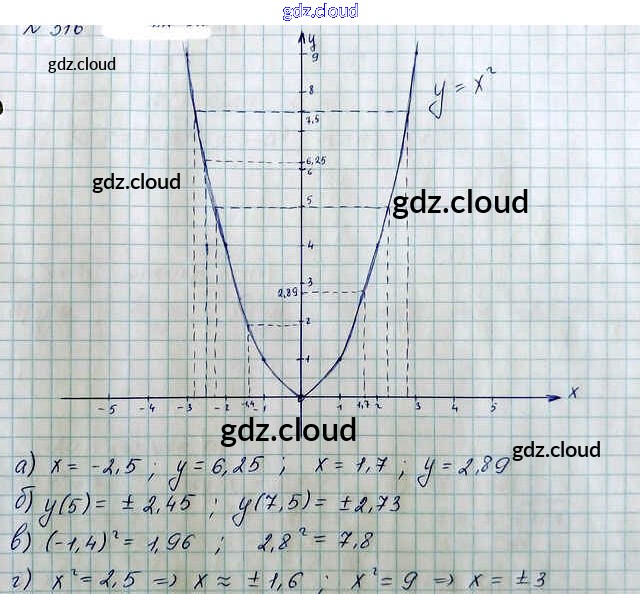 gdz.cloud
N 516
gdz.cloud
y
9
8
7,5
y = x²
6,25
6
gdz.cloud
5
gdz.cloud
4
3
2,89
2
1
-5 -4 -3 -2 -1,4 -1 0 1 1,7 2 3 4 5 x
gdz.cloud
gdz.cloud
а) x = -2,5 ; y = 6,25 ; x = 1,7 ; y = 2,89
б) y(5) = ± 2,45 ; y(7,5) = ± 2,73
в) (-1,4)² = 1,96 ; 2,8² = 7,8
г) x² = 2,5 => x ≈ ± 1,6 ; x² = 9 => x = ± 3